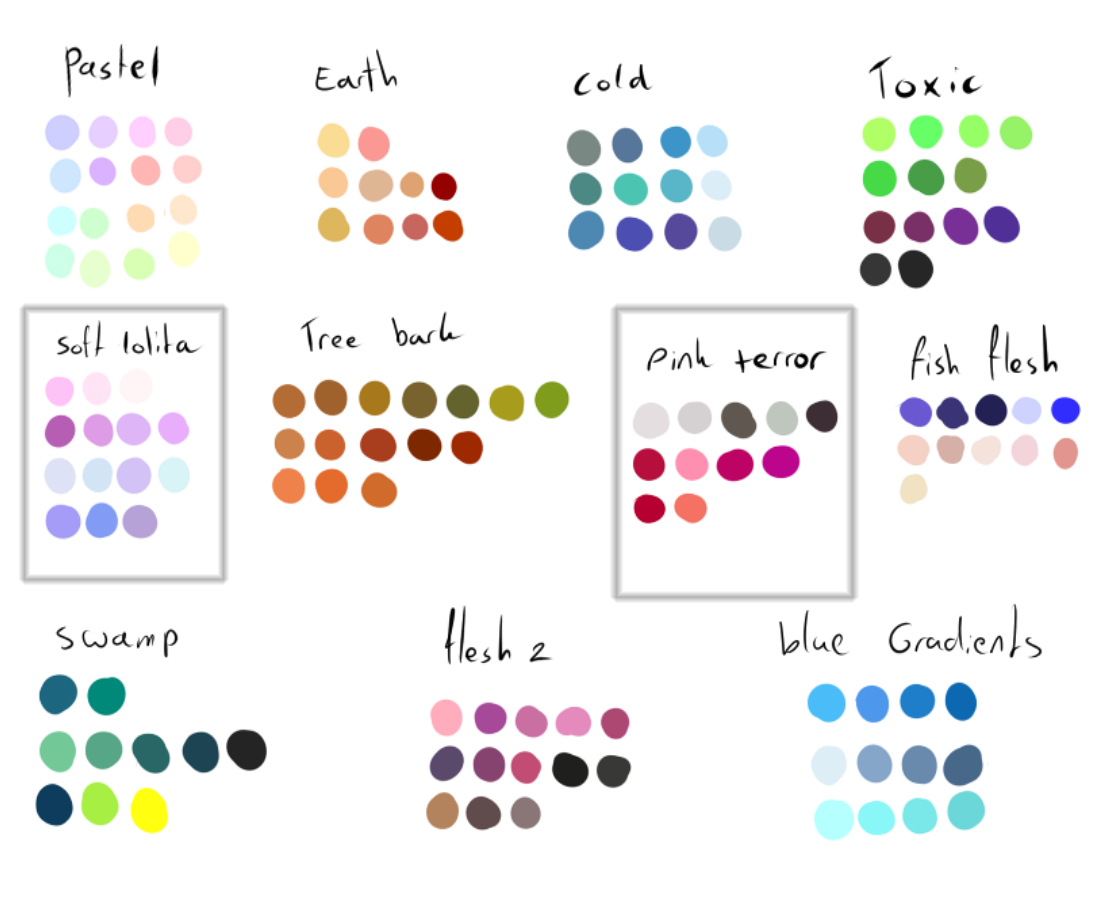 Pastel
Earth
cold
Toxic
soft lolita
Tree bark
pink terror
fish flesh
swamp
flesh 2
blue Gradients